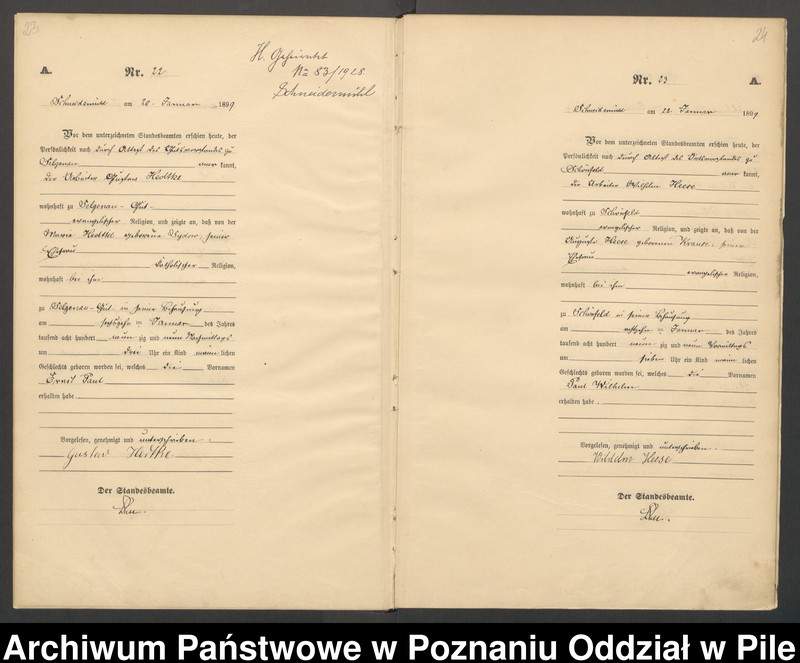 23
A.
Nr. 22
H. Geheiratet
No 83/1928
Schneidemühl
Schneidemühl am 20. Januar 1899
Vor dem unterzeichneten Standesbeamten erschien heute, der
Persönlichkeit nach durch Attest des Gutsvorstandes zu
Selgenau anerkannt,
der Arbeiter Gustav Hedtke
wohnhaft zu Selgenau-Gut-
evangelischer Religion, und zeigte an, daß von der
Marie Hedtke geborene Sydow, seiner
Ehefrau
katholischer Religion,
wohnhaft bei ihm
zu Selgenau-Gut- in seiner Behausung
am sechszehn ten Januar des Jahres
tausend acht hundert neun zig und neun Nachmittags
um drei Uhr ein Kind männlichen
Geschlechts geboren worden sei, welches die Vornamen
Ernst Paul
erhalten habe
Vorgelesen, genehmigt und unterschrieben.
Gustav Hedtke
Der Standesbeamte.
24
Nr. 23
A.
Schneidemühl am 22. Januar 1899
Vor dem unterzeichneten Standesbeamten erschien heute, der
Persönlichkeit nach durch Attest des Ortsvorstandes zu
Schönfeld anerkannt,
der Arbeiter Wilhelm Heese
wohnhaft zu Schönfeld
evangelischer Religion, und zeigte an, daß von der
Auguste Heese geborenen Krause, seiner
Ehefrau
evangelischer Religion,
wohnhaft bei ihm
zu Schönfeld in seiner Behausung
am ten Januar des Jahres
tausend acht hundert neun zig und neun Vormittags
um sieben Uhr ein Kind männlichen
Geschlechts geboren worden sei, welches die Vornamen
Paul Wilhelm
erhalten habe.
Vorgelesen, genehmigt und unterschrieben.
Wilhelm Heese
Der Standesbeamte.
Archiwum Państwowe w Poznaniu Oddział w Pile